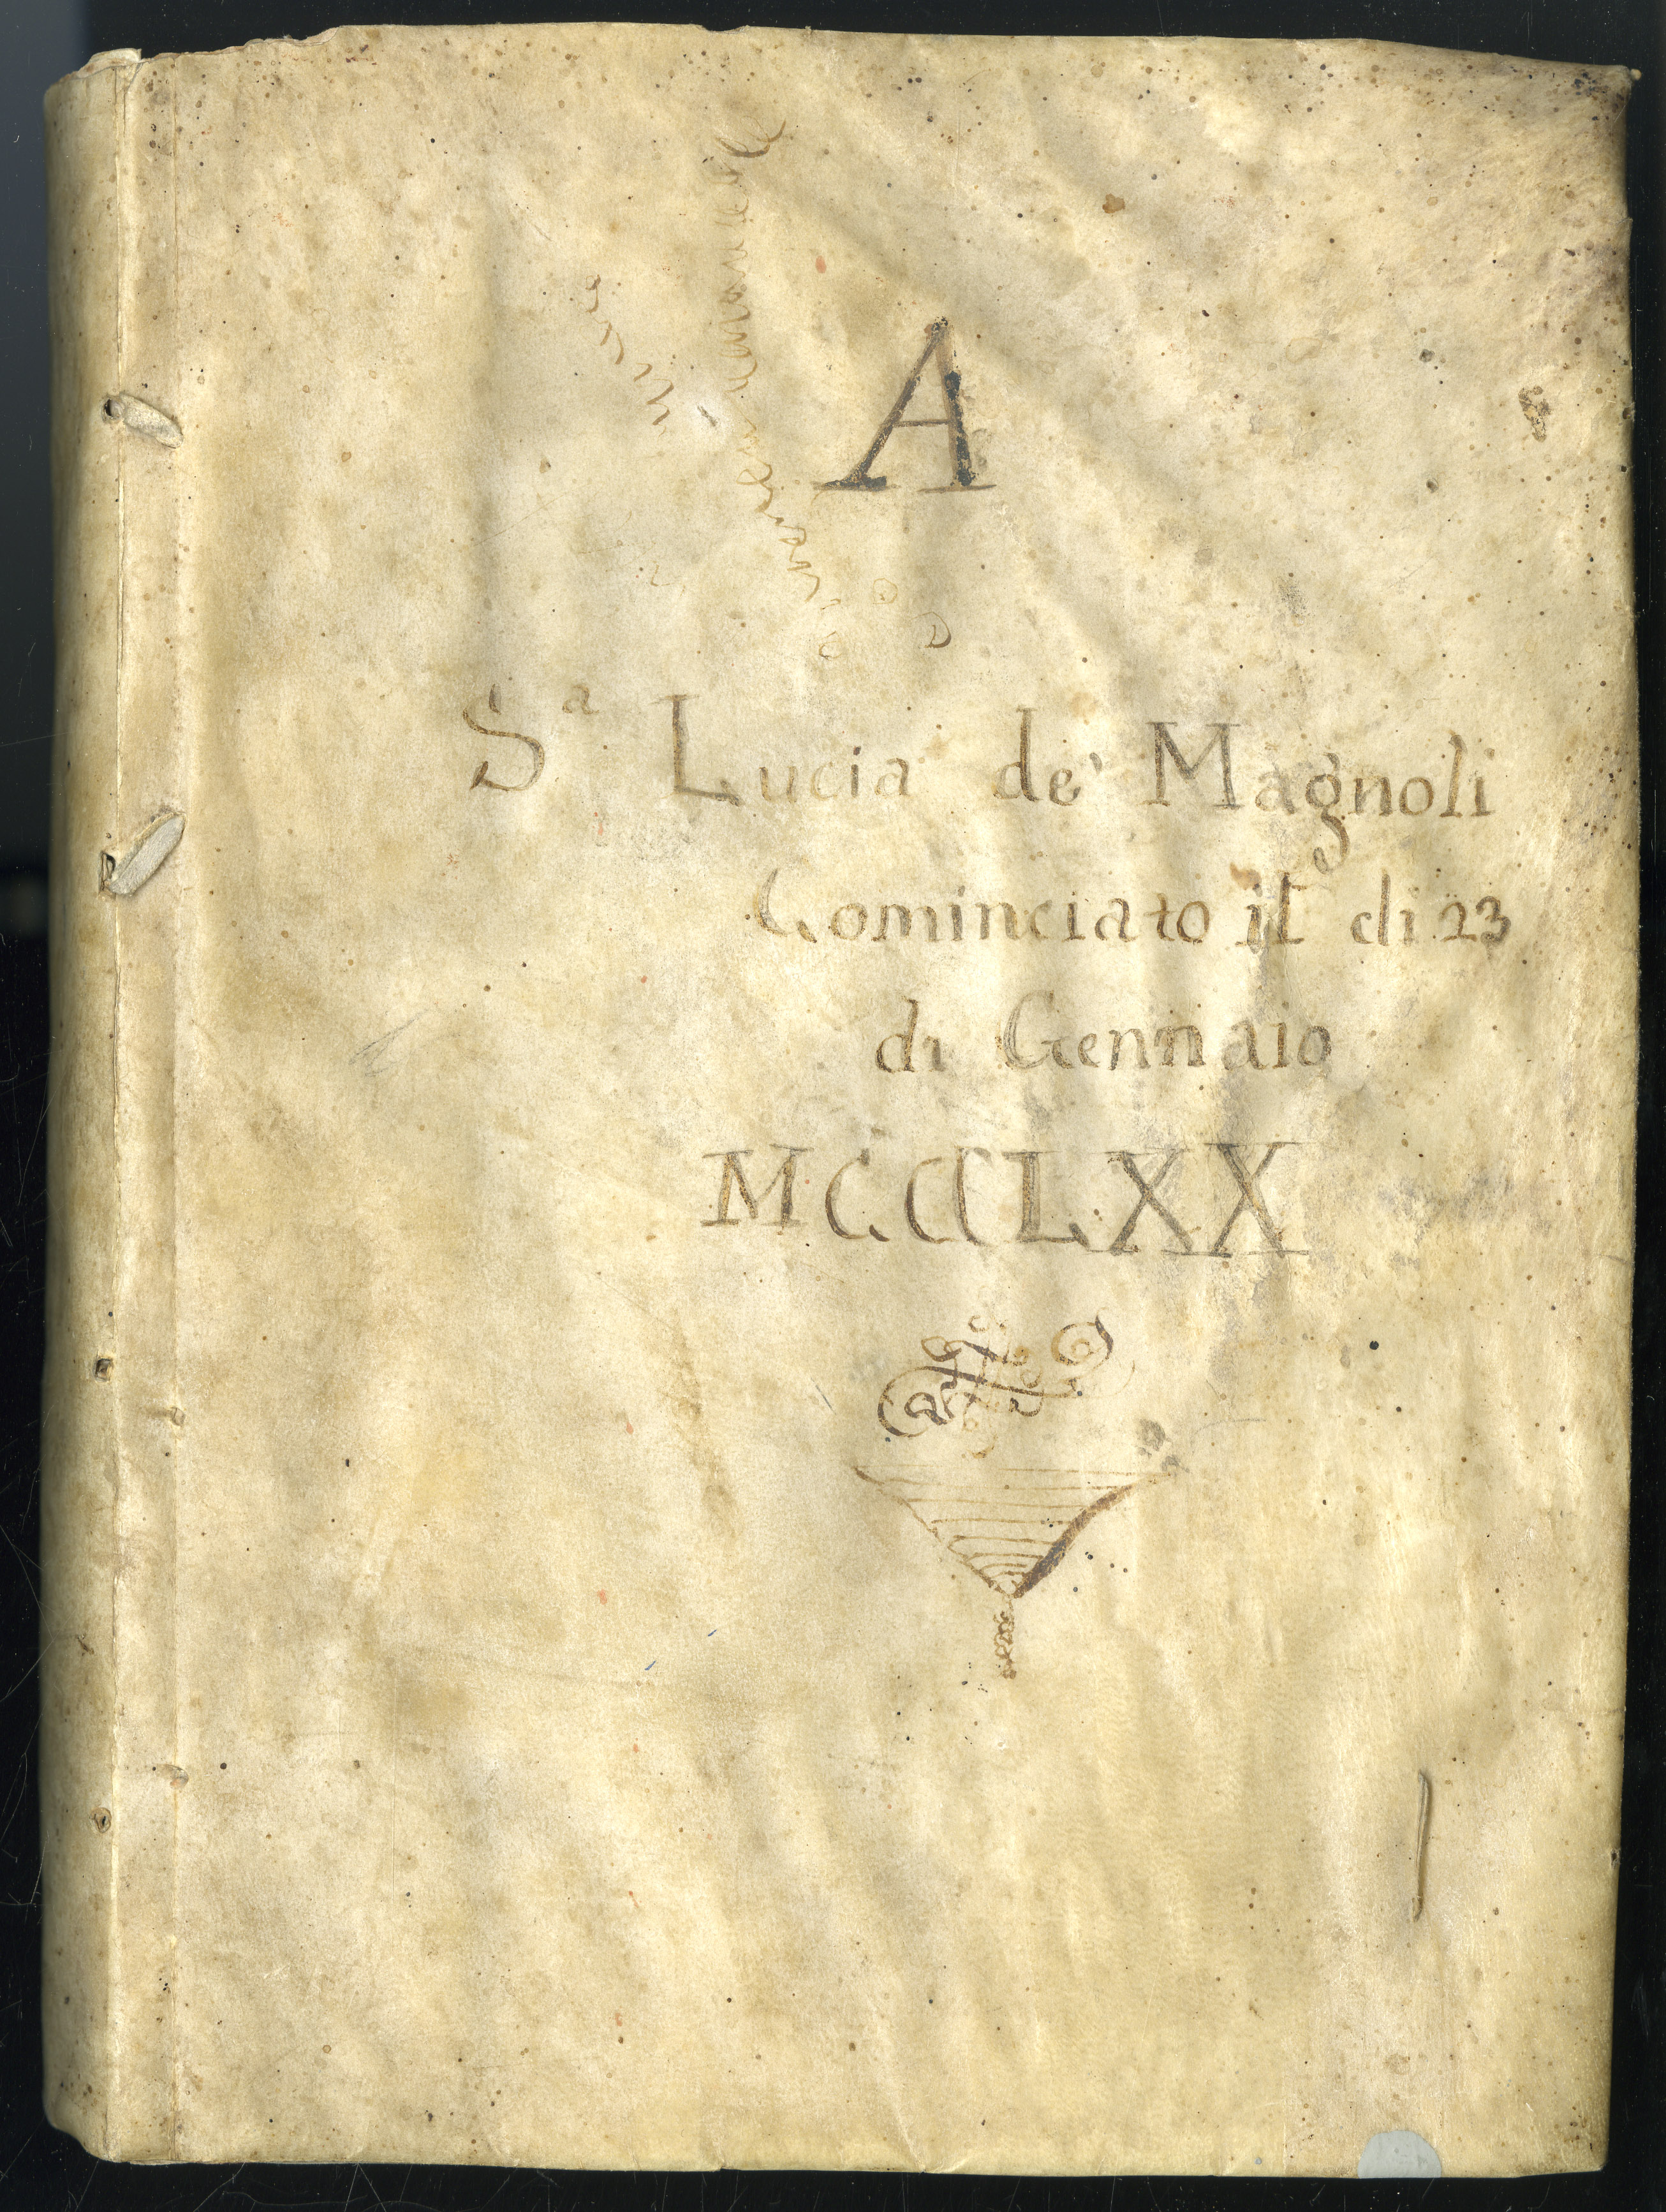 A
Sª Lucia de' Magnoli
Cominciato il di 23
di Gennaio
MCCCLXX